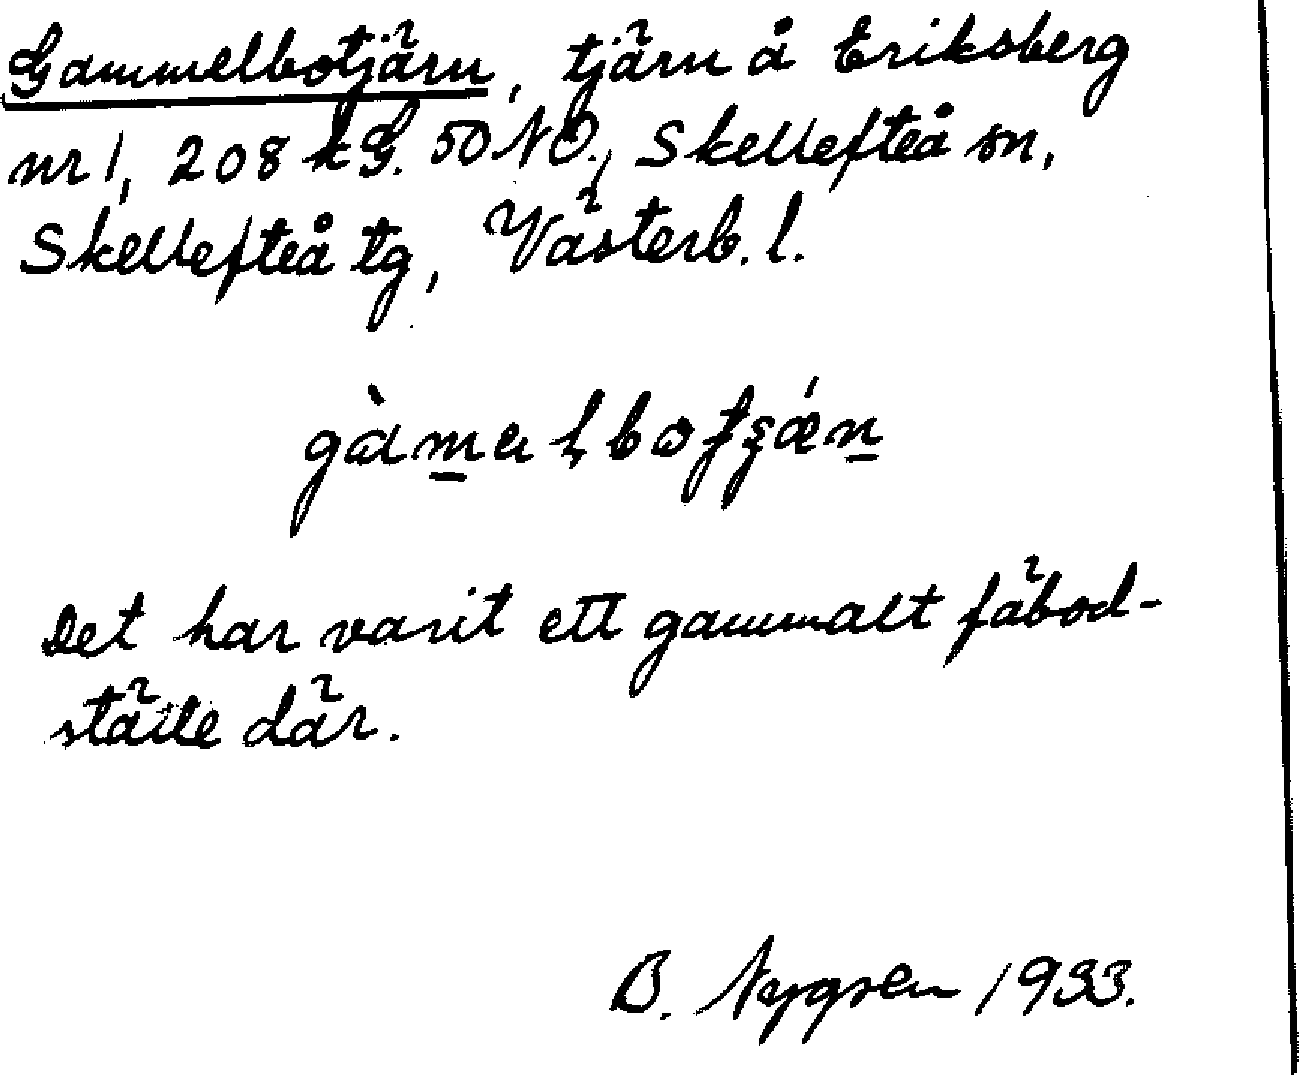 Gammelbotjärn, tjärn å Eriksberg
nr 1, 208 kG. 50 NO., Skellefteå sn,
Skellefteå tg, Västerb. l.
Det har varit ett gammalt fäbod-
ställe där.
B. Nygren 1933.